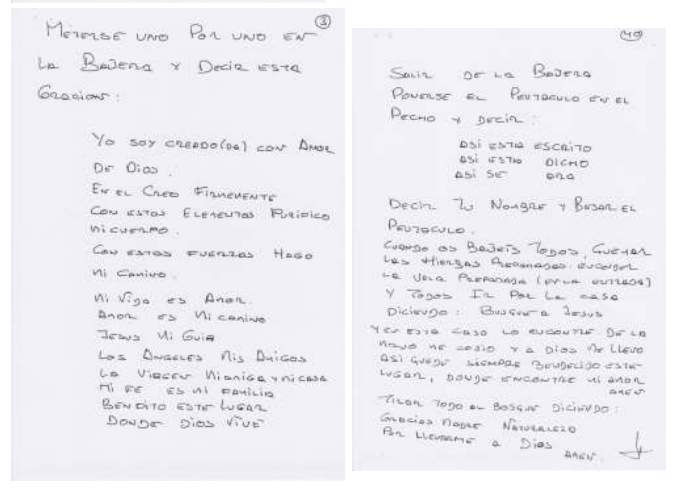 3
METERSE UNO POR UNO EN
LA BAÑERA Y DECIR ESTA
ORACION:
YO SOY CREADO(DA) CON AMOR
DE DIOS.
EN EL CREO FIRMEMENTE
CON ESTOS ELEMENTOS PURIFICO
MI CUERPO.
CON ESTAS FUERZAS HAGO
MI CAMINO.
MI VIDA ES AMOR.
AMOR ES MI CAMINO
JESUS MI GUIA
LOS ANGELES MIS AMIGOS
LA VIRGEN MI AMIGA Y MI CASA
MI FE ES MI FAMILIA
BENDITO ESTE LUGAR
DONDE DIOS VIVE
SALIR DE LA BAÑERA
PONERSE EL PENTACULO EN EL
PECHO Y DECIR:
ASI ESTA ESCRITO
ASI ESTA DICHO
ASI SE ORA
DECIR TU NOMBRE Y BESAR EL
PENTACULO.
CUANDO OS BAÑEIS TODOS, QUEMAR
LAS HIERBAS PREPARADAS. ENCENDER
LA VELA PREPARADA (EN LA ENTRADA)
Y TODOS IR POR LA CASA
DICIENDO: BUSQUE A JESUS
Y EN ESTA CASA LO ENCONTRE DE LA
MANO ME COGIO Y A DIOS ME LLEVO
ASI QUEDE SIEMPRE BENDECIDO ESTE
LUGAR, DONDE ENCONTRE MI AMOR
AMEN
TIRAR TODO AL BOSQUE DICIENDO:
GRACIAS MADRE NATURALEZA
POR LLEVARME A DIOS
AMEN.